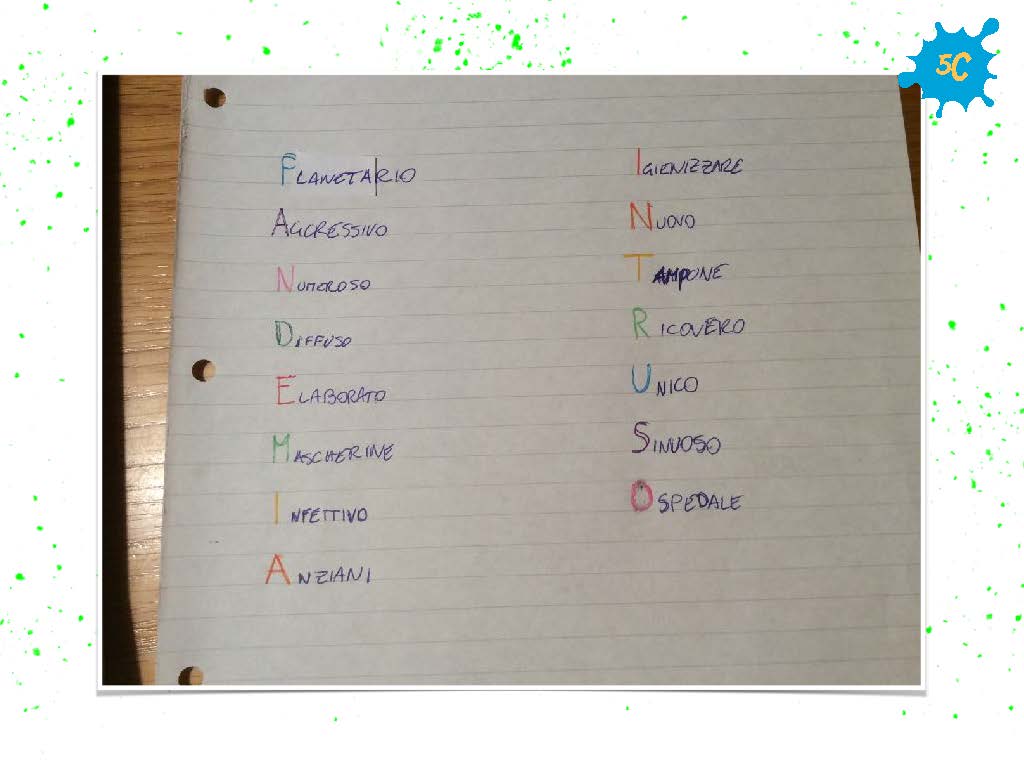 5C
PLANETARIO
AGGRESSIVO
NUMEROSO
DIFFUSO
ELABORATO
MASCHERINE
INFETTIVO
ANZIANI
IGIENIZZARE
NUOVO
TAMPONE
RICOVERO
UNICO
SINUOSO
OSPEDALE